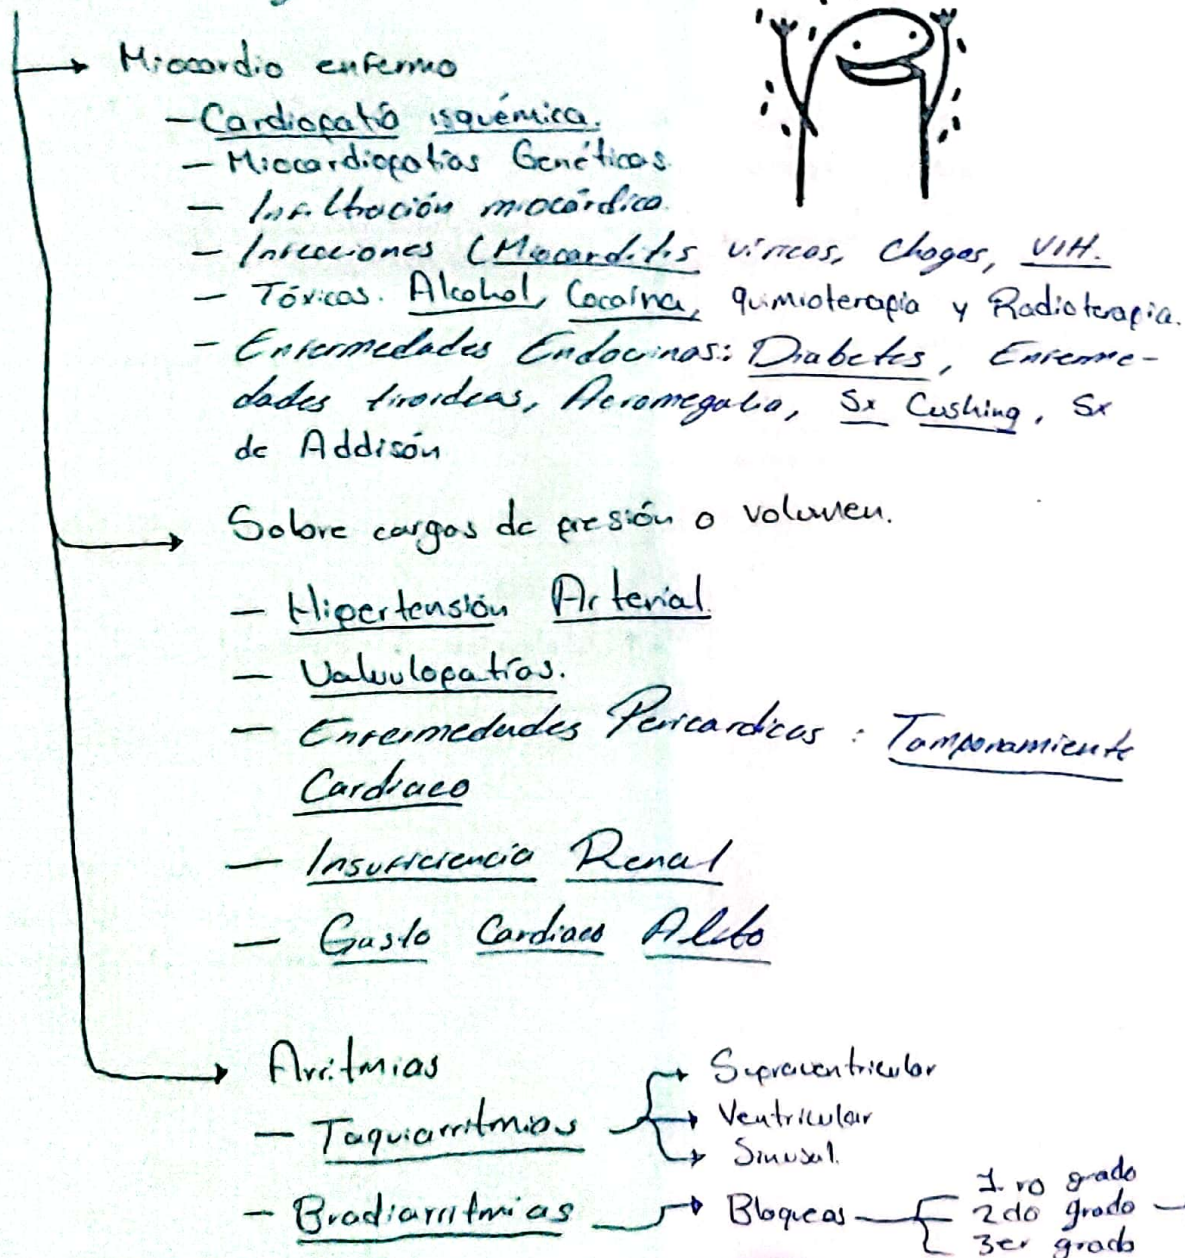 Miocardio enfermo
- Cardiopatía isquémica.
- Miocardiopatías Genéticas.
- Infiltración miocárdica.
- Infecciones (Miocarditis víricas, Chagas, VIH.
- Tóxicos. Alcohol, Cocaína, quimioterapia y Radioterapia.
- Enfermedades Endocrinas: Diabetes, Enferme-
dades tiroideas, Acromegalia, Sx Cushing, Sx
de Addisón
Sobre cargas de presión o volumen.
- Hipertensión Arterial.
- Valvulopatías.
- Enfermedades Pericardicas : Tamponamiento
Cardiaco
- Insuficiencia Renal
- Gasto Cardiaco Alto
Arritmias
- Taquiarritmias
Supraventricular
Ventricular
Sinusal.
- Bradiarritmias
Bloqueos
1.ro grado
2do grado
3er grado